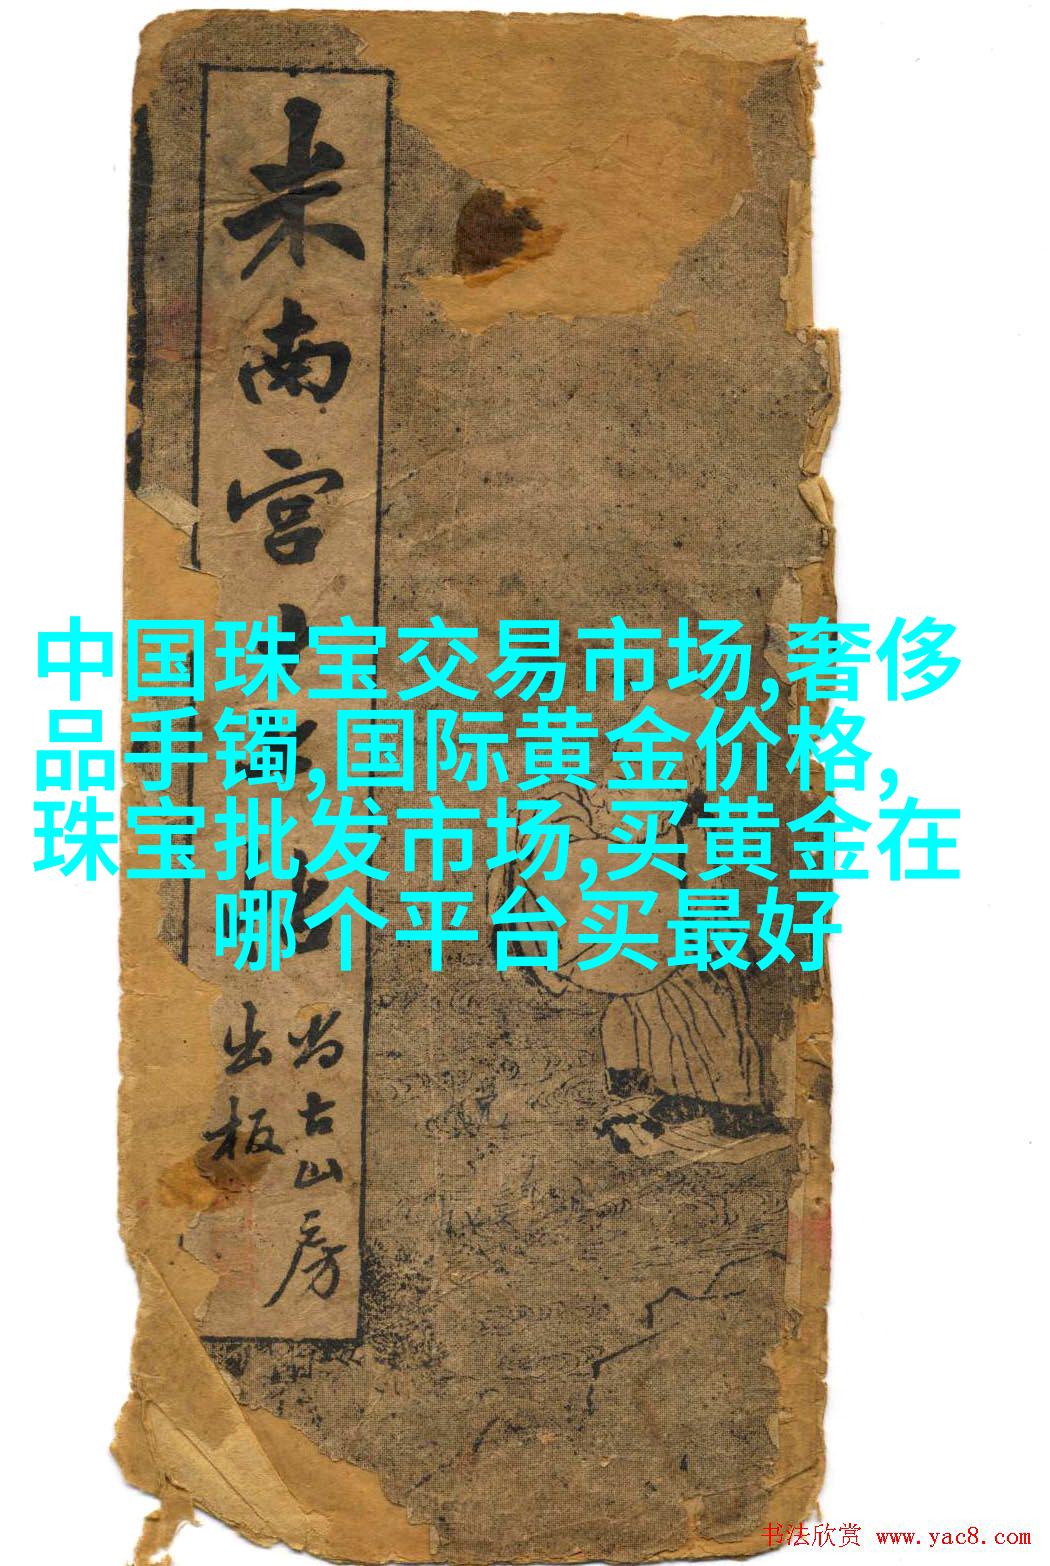 米南宫
尚古山房
出板
中国珠宝交易市场,奢侈
品手镯,国际黄金价格,
珠宝批发市场,买黄金在
哪个平台买最好
书法欣赏 www.yac8.com